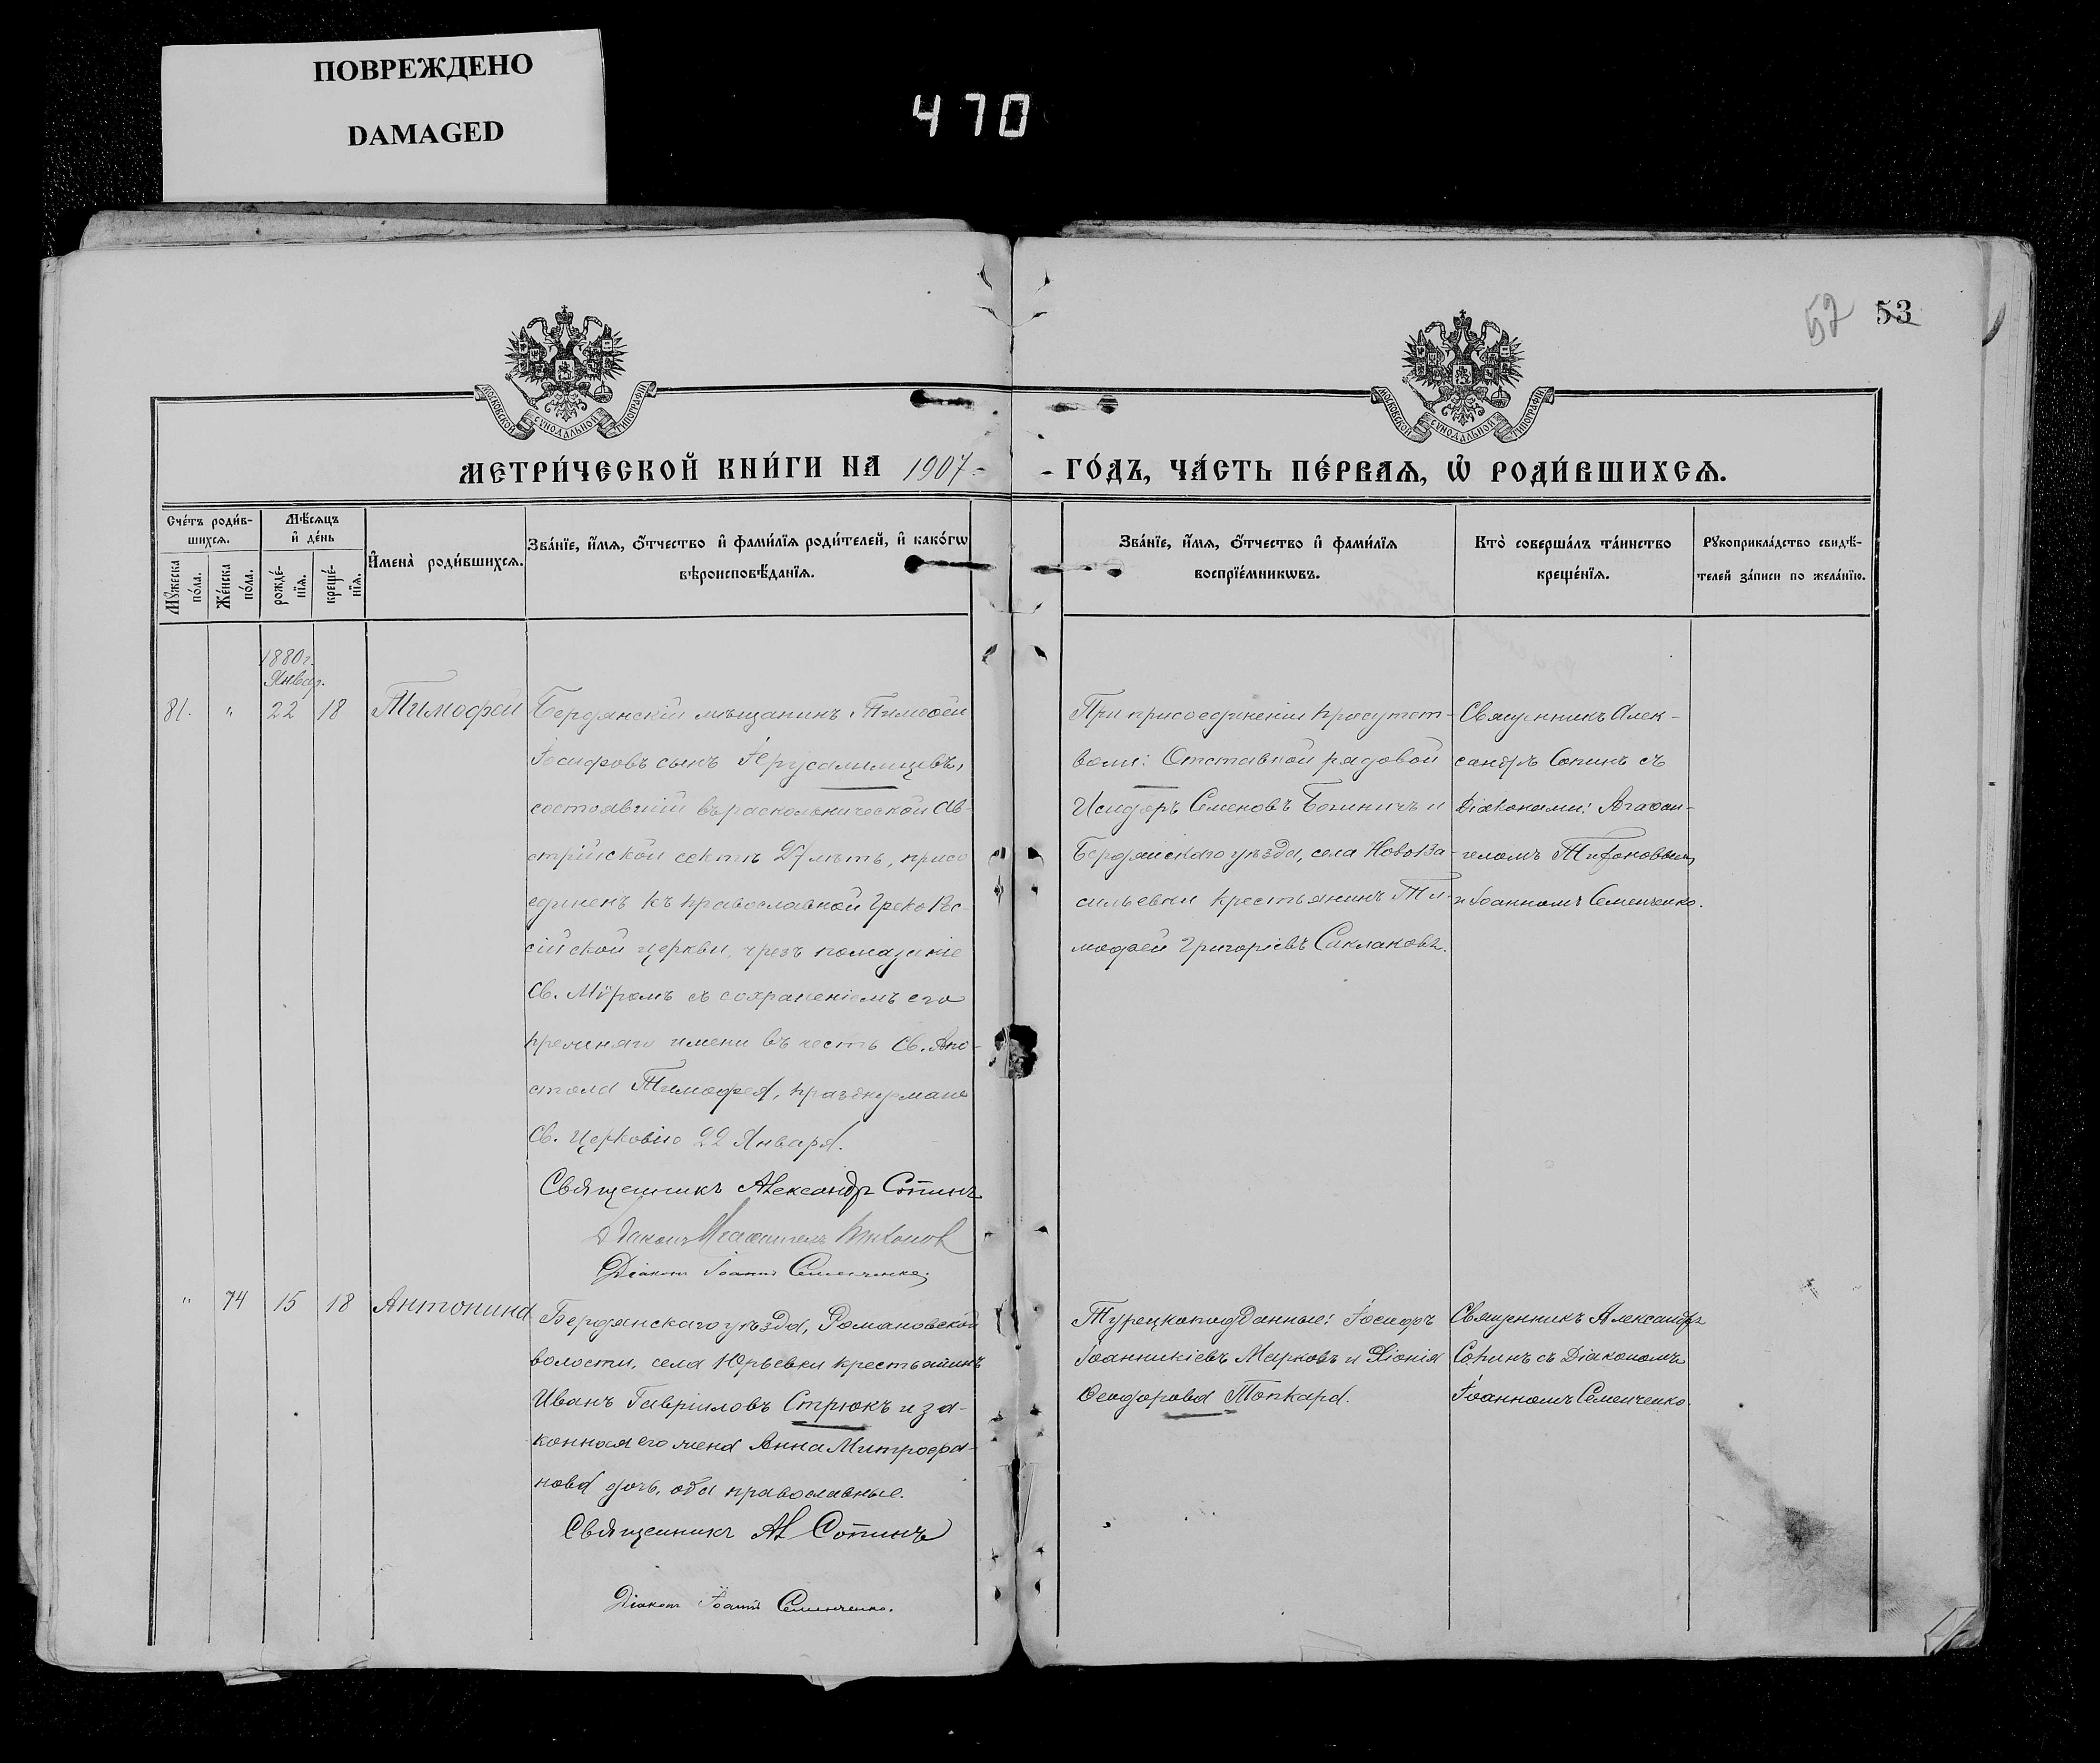 ПОВРЕЖДЕНО
DAMAGED
470
52 53
МОСКОВСКОЙ СѴНОДАЛЬНОЙ ТИПОГРАФІИ
МОСКОВСКОЙ СѴНОДАЛЬНОЙ ТИПОГРАФІИ
МЕТРИ́ЧЕСКОЙ КНИ́ГИ НА 1907 - - ГО́ДЪ, ЧА́СТЬ ПЕ́РВАѦ, Ѡ҆ РОДИ́ВШИХСѦ.
Сче́тъ роди́в-
шихсѧ.
Мѣ́сѧцъ
и҆ де́нь
Мꙋ́жеска
по́ла.
Же́нска
по́ла.
рожде́-
нїѧ.
креще́-
нїѧ.
И҆мена̀ роди́вшихсѧ.
Зва́нїе, и҆́мѧ, ѻ҆́тчество и҆ фами́лїѧ роди́телей, и҆ како́гѡ
вѣроисповѣ́данїѧ.
Зва́нїе, и҆́мѧ, ѻ҆́тчество и҆ фами́лїѧ
воспрїе́мникѡвъ.
Кто̀ соверша́лъ та́инство
креще́нїѧ.
Рꙋкоприкла́дство свидѣ́-
телей за́писи по жела́нїю.
1880 г.
Январ.
81. " 22 18 Тимофей
Бердянскій мѣщанинъ Тимофей
Іосифовъ сынъ Іерусалимцевъ,
состоявшій въ раскольнической Ав-
стрійской сектѣ 27 лѣтъ, присо
единенъ къ православной Греко Рос-
сійской церкви, чрезъ помазаніе
Св. Мѵромъ съ сохраненіемъ его
прежняго имени въ честь Св. Апо-
стола Тимофея, празднуемаго
Св. Церковію 22 Января.
Священникъ Александръ Сопинъ
Діаконъ Агафангелъ Тихонов
Діаконъ Іоаннъ Семенченко.
При присоединеніи присутст-
вовали: Отставной рядовой
Исидоръ Семеновъ Богиничъ и
Бердянскаго уѣзда, села Новова-
сильевки крестьянинъ Ти-
мофей Григоріевъ Саклаковъ.
Священникъ Алек-
сандръ Сопинъ съ
Діаконами: Агафан-
геломъ Тихоновым
и Іоанномъ Семенченко.
" 74 15 18 Антонина
Бердянскаго уѣзда, Романовской
волости, села Юрьевки крестьянинъ
Иванъ Гавріиловъ Стрюкъ и за-
конная его жена Анна Митрофа-
нова дочь, оба православные.
Священникъ Ал Сопинъ
Діаконъ Іоаннъ Семенченко.
Турецкоподданные: Іосифъ
Іоанникіевъ Марковъ и Хіонія
Ѳеодорова Топкара.
Священникъ Александръ
Сопинъ съ Діакономъ
Іоанномъ Семенченко.